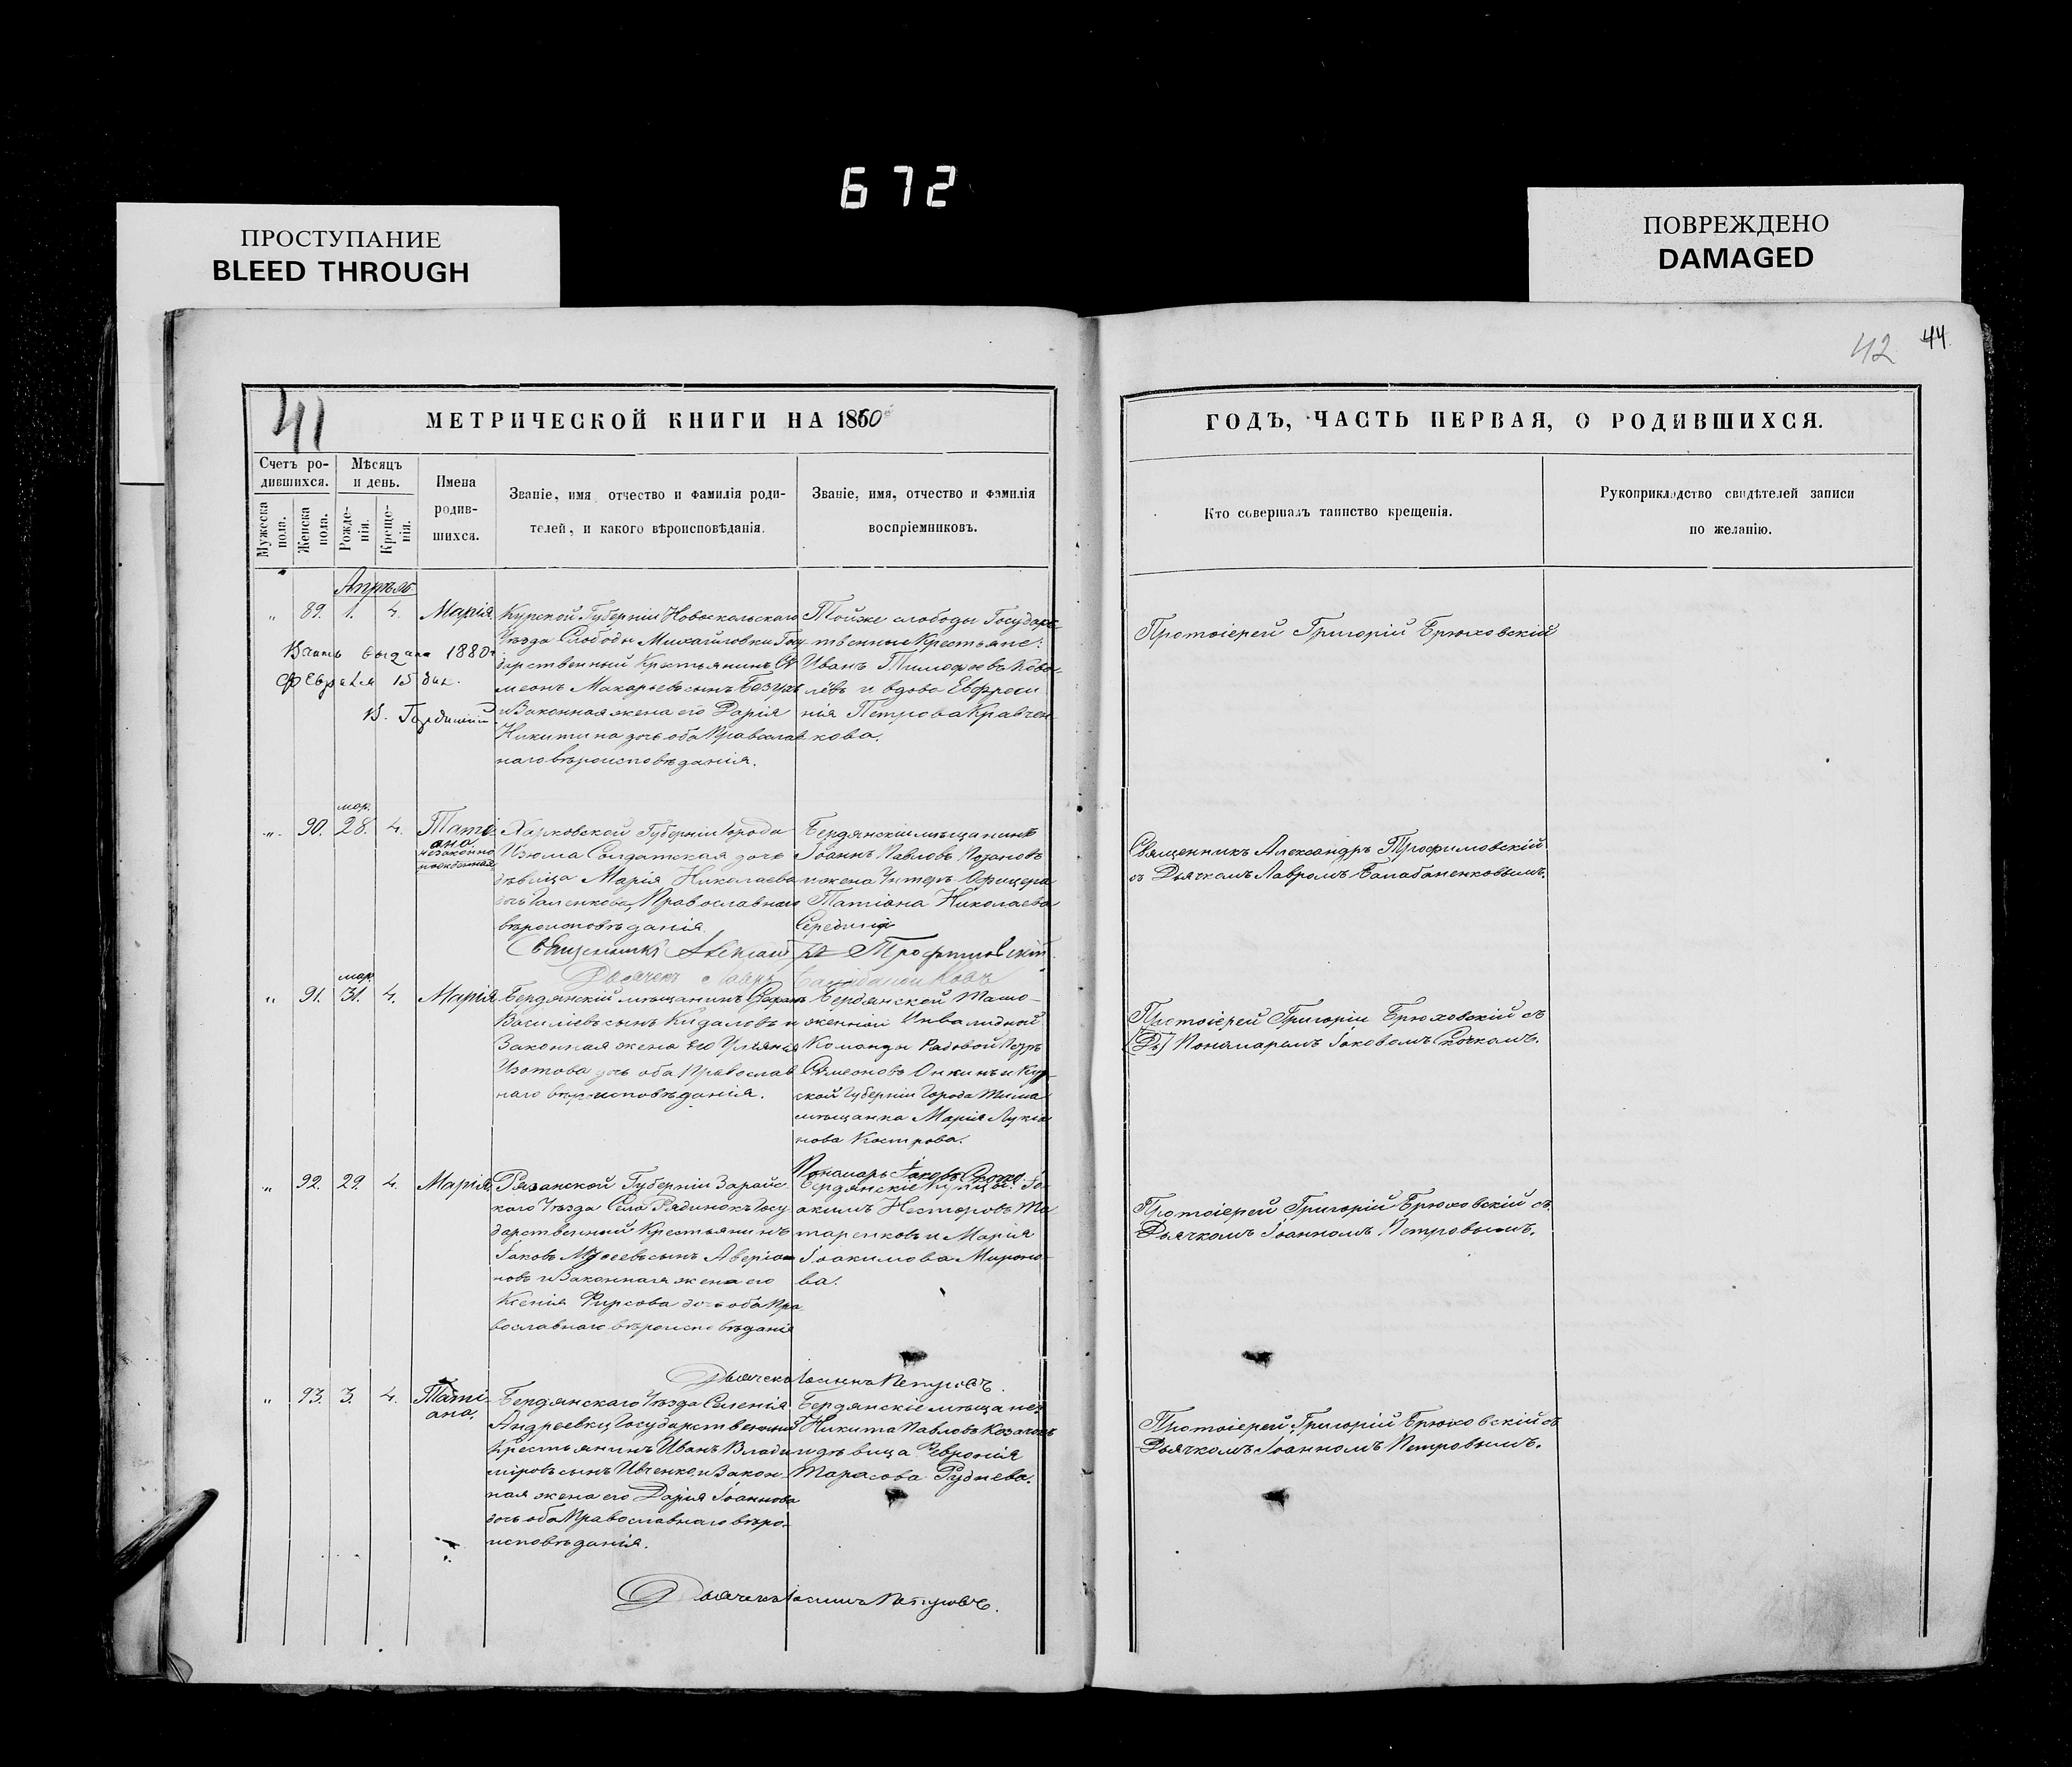 672
ПРОСТУПАНИЕ
BLEED THROUGH
ПОВРЕЖДЕНО
DAMAGED
42 44
41
МЕТРИЧЕСКОЙ КНИГИ НА 1860
ГОДЪ, ЧАСТЬ ПЕРВАЯ, О РОДИВШИХСЯ.
Счетъ ро-
дившихся.
Мужеска
пола.
Женска
пола.
Мѣсяцъ
и день.
Рожде-
нія.
Креще-
нія.
Имена
родив-
шихся.
Званіе, имя отчество и фамилія роди-
телей, и какого вѣроисповѣданія.
Званіе, имя, отчество и фамилія
воспріемниковъ.
Кто совершалъ таинство крещенія.
Рукоприкладство свидѣтелей записи
по желанію.
Апрѣль
" 89. 1. 4. Марія
выдана 1880
Февраля 15 дня.
Курской Губерніи Новоскольскаго
Уѣзда Слободы Михайловки Госу
дарственный Крестьянинъ Си
меонъ Макарьевъ сынъ
и Законная жена его Дарія
Никитина дочь оба Православ
наго вѣроисповѣданія.
Тойже слободы Государс
твенные Крестьяне:
Иванъ Тимофѣевъ Кова-
лёвъ и вдова Евфроси
нія Петрова Кравчен-
кова.
Протоіерей Григорій Брюховскій
" 90. мар. 28. 4. Таті-
ана
незаконно
рожденная
Харковской Губерніи Города
Изюма Солдатская дочь
дѣвица Марія Николаева
дочь Православнаго
вѣроисповѣданія.
Бердянскій мѣщанинъ
Іоаннъ Павловъ
и жена Унтеръ-Офицера
Татіана Николаева
Священникъ Александръ Трофимовскій
Дьячекъ Лавръ
Священникъ Александръ Трофимовскій
съ Дьячкомъ Лавромъ Балабаненковымъ.
" 91. мар. 31. 4. Марія
Бердянскій мѣщанинъ
Василіевъ сынъ Кидаловъ и
Законная жена его Уліянія
Изотова дочь оба Православ
наго вѣроисповѣданія.
Бердянской Тамо-
женной Инвалидной
Команды Рядовой Петръ
Симеоновъ Онкинъ и Кур
ской Губерніи Города Тима
мѣщанка Марія Лукіа
нова Кострова.
Пономарь Іаковъ Скочко
Протоіерей Григорій Брюховскій съ
(Дь) Пономаремъ Іаковомъ Скочкомъ.
" 92. 29. 4. Марія
Рязанской Губерніи Зарайс
каго Уѣзда Села Рядинокъ Госу
дарственный Крестьянинъ
Іаковъ Мусеевъ сынъ Аверіа
новъ и Законная жена его
Ксенія Фирсова дочь оба Пра
вославнаго вѣроисповѣданія
Бердянскіе Купцы: Іо-
акимъ Несторовъ Та
таренковъ и Марія
Іоакимова Мироно-
ва.
Дьячекъ Іоаннъ Петровъ.
Протоіерей Григорій Брюховскій съ
Дьячкомъ Іоанномъ Петровымъ.
" 93. 3. 4. Таті-
ана.
Бердянскаго Уѣзда Селенія
Андреевки Государственный
Крестьянинъ Иванъ Влади
міровъ сынъ Ивченко и Закон-
ная жена его Дарія Іоаннова
дочь оба Православнаго вѣро-
исповѣданія.
Бердянскіе мѣщане:
Никита Павловъ
и дѣвица Февронія
Тарасова Руднева.
Дьячекъ Іоаннъ Петровъ.
Протоіерей Григорій Брюховскій съ
Дьячкомъ Іоанномъ Петровымъ.